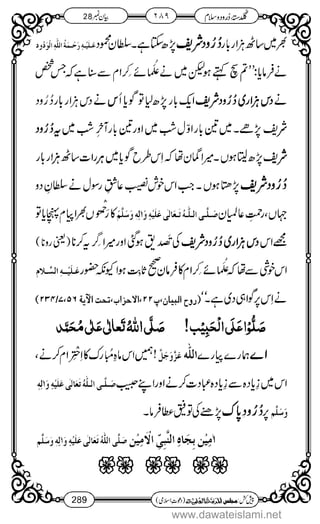 گلدستۂ دُرود و سلام ٢٨٩ بیان نمبر 28
میں بھی ساٹھ ہزار بار دُرُودشریف پڑھ سکتا ہے۔ سلطان محمود عَلَیْہِ رَحْمَۃُ اللہِ الْوَدُوْد
نے فرمایا: ’’تم سچ کہتے ہو لیکن میں نے عُلمائے کرام سے سنا ہے کہ جس شخص
نے دس ہزاری دُرُودشریف ایک بار پڑھ لیا گویا اُس نے دس ہزار بار دُرُود
شریف پڑھے۔ میں تین بار اوّل شب میں اور تین بار آخرِ شب میں یہ دُرُود
شریف پڑھ لیتا ہوں۔ میرا گمان تھا کہ اِس طرح گویا میں ہر رات ساٹھ ہزار بار
دُرُودشریف پڑھتا ہوں۔ جب اس خوش نصیب عاشقِ رسول نے سلطانِ دو
جہاں، رحمتِ عالمیان صَلَّی اللہُ تَعَالٰی عَلَیْہِ وَاٰلِہٖ وَسَلَّم کا رَحمتوں بھرا پیام پہنچایا تو
مجھے اِس دس ہزاری دُرُودشریف کی تصدیق ہوگئی اور میرا یہ گِریہ کرنا (یعنی رونا)
اس خوشی سے تھا کہ عُلمائے کرام کا فرمان صحیح ثابت ہوا کیونکہ حضور عَلَیْہِ السَّلَام
نے اس پر گواہی دی ہے۔‘‘ (روح البیان، پ ٢٢، الاحزاب، تحت الآیۃ ٥٦، ٢٣٤/٧)
صَلُّوْا عَلَی الْحَبِیْب! صَلَّی اللہُ تَعَالٰی عَلٰی مُحَمَّد
اے ہمارے پیارے اللہ عَزَّوَجَلَّ! ہمیں اس ماہِ مبارک کا اِحْتِرام کرنے،
اس میں زِیادہ سے زِیادہ عبادت کرنے اور اپنے حبیب صَلَّی اللہُ تَعَالٰی عَلَیْہِ وَاٰلِہٖ
وَسَلَّم پر دُرُودِ پاک پڑھنے کی توفیق عطا فرما۔
اٰمِیْن بِجَاہِ النَّبِیِّ الْاَمِیْن صَلَّی اللہُ تَعَالٰی عَلَیْہِ وَاٰلِہٖ وَسَلَّم
289
www.dawateislami.net